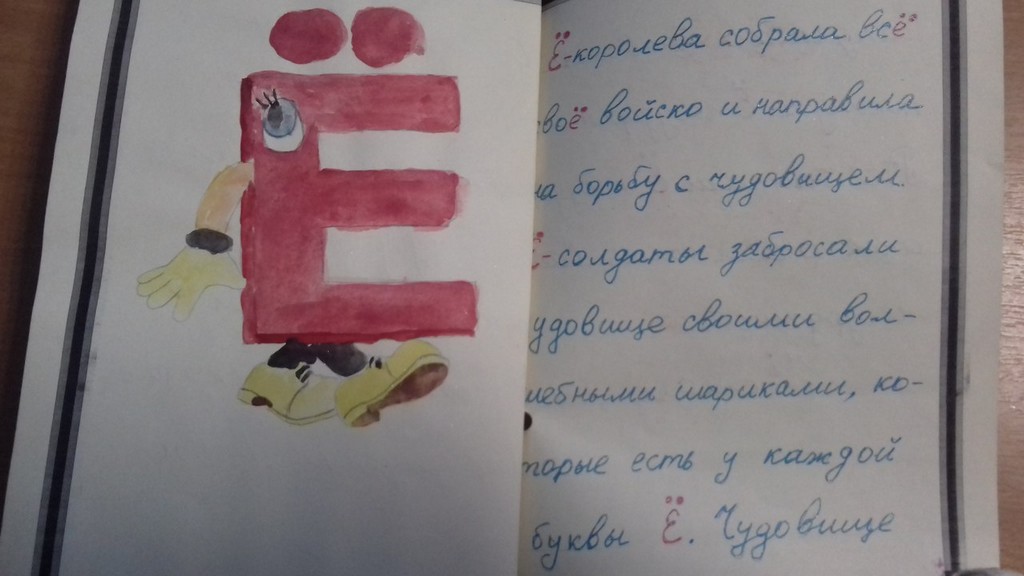 Ё
Ё-королева собрала всё
своё войско и направила
на борьбу с чудовищем.
Ё-солдаты забросали
чудовище своими вол-
шебными шариками, ко-
торые есть у каждой
буквы Ё. Чудовище